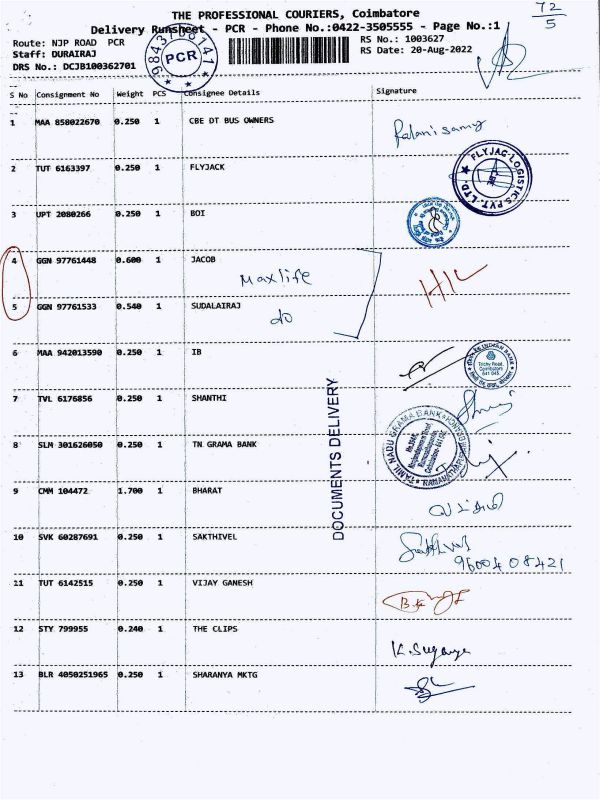 THE PROFESSIONAL COURIERS, Coimbatore
72
5
Delivery Runsheet - PCR - Phone No.:0422-3505555 - Page No.:1
Route: NJP ROAD PCR
RS No.: 1003627
Staff: DURAIRAJ
RS Date: 20-Aug-2022
DRS No.: DCJB100362701
9843708141
PCR
S No Consignment No Weight PCS Consignee Details Signature
1 MAA 858022670 0.250 1 CBE DT BUS OWNERS
Palanisamy
2 TUT 6163397 0.250 1 FLYJACK
FLYJAC LOGISTICS PVT. LTD.
CBE
3 UPT 2080266 0.250 1 BOI
4 GGN 97761448 0.600 1 JACOB
Maxlife
5 GGN 97761533 0.540 1 SUDALAIRAJ
do
6 MAA 942013590 0.250 1 IB
INDIAN BANK
Trichy Road,
Coimbatore
641 045
7 TVL 6176856 0.250 1 SHANTHI
8 SLM 301626050 0.250 1 TN GRAMA BANK
TAMIL NADU GRAMA BANK
DOCUMENTS DELIVERY
9 CMM 104472 1.700 1 BHARAT
10 SVK 60287691 0.250 1 SAKTHIVEL
Sakthivel
9600408421
11 TUT 6142515 0.250 1 VIJAY GANESH
12 STY 799955 0.240 1 THE CLIPS
K. Suganya
13 BLR 4050251965 0.250 1 SHARANYA MKTG